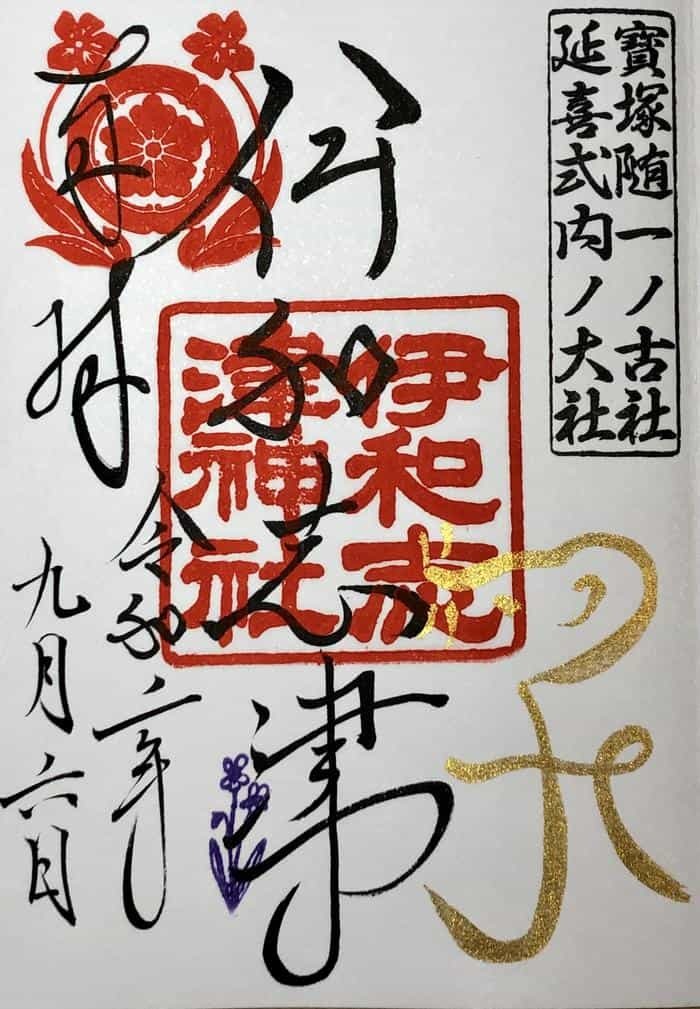 寶塚随一ノ古社
延喜式内ノ大社
伊和志津
伊和志
津神社
奉拝
令和二年
九月六日